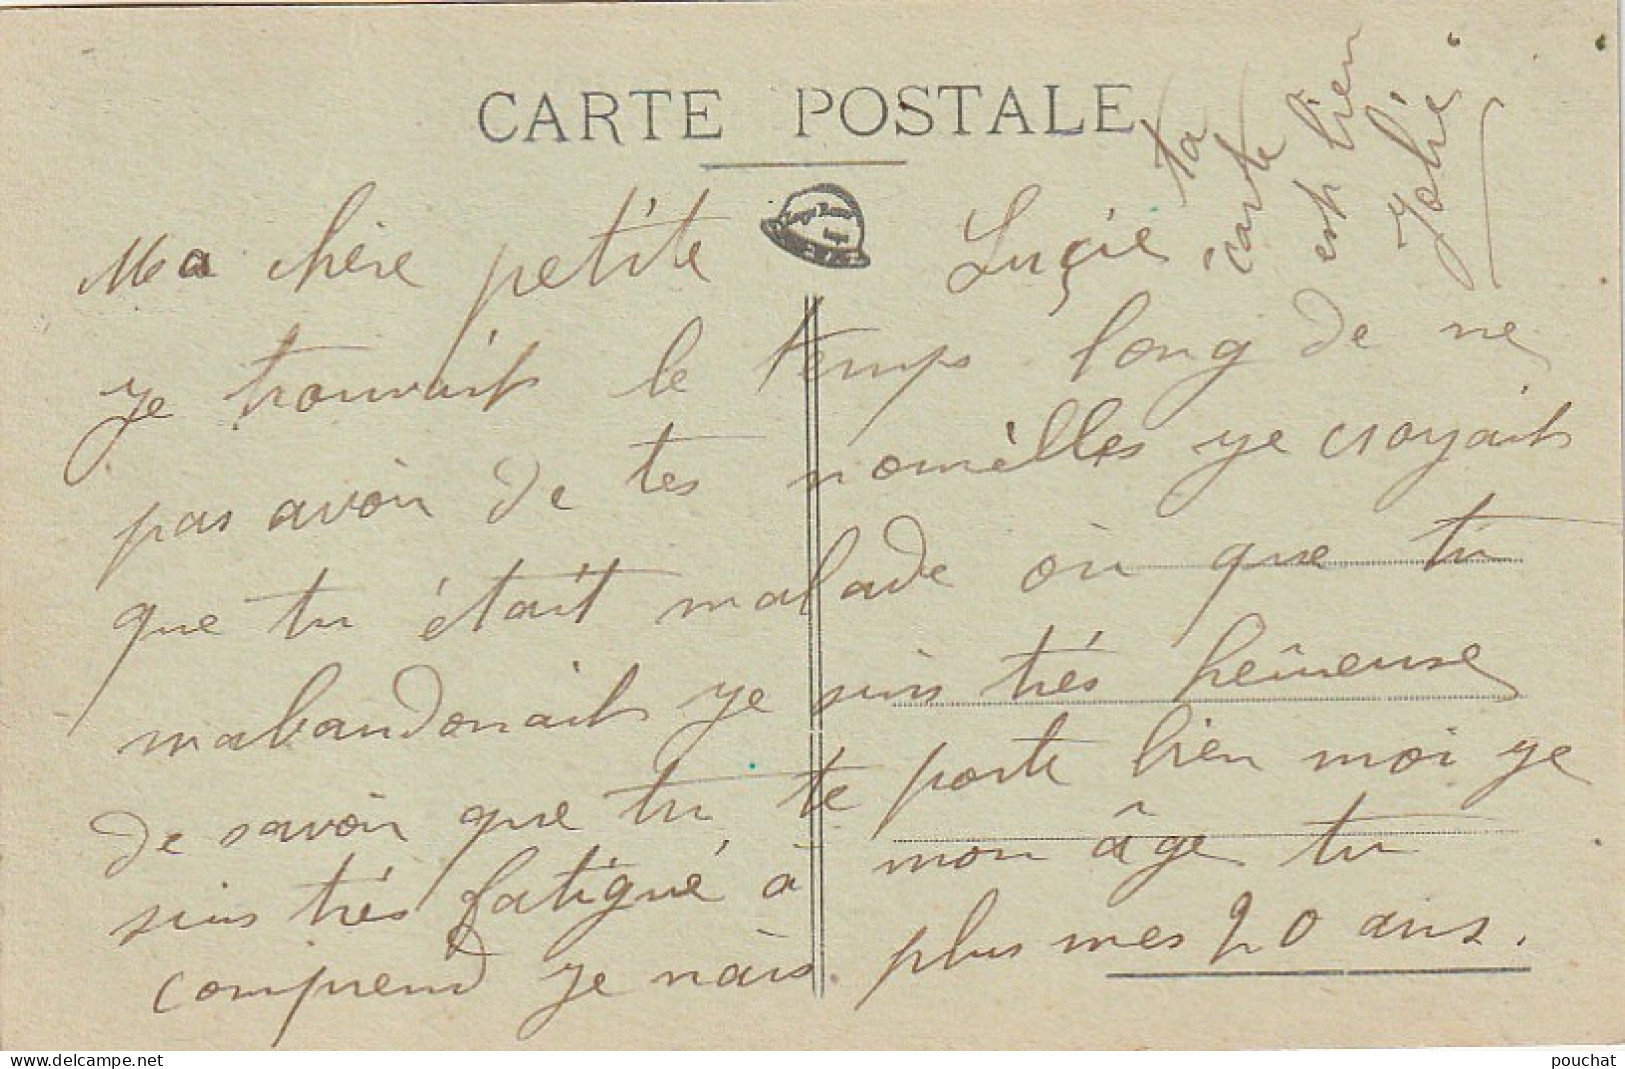 CARTE POSTALE
Ma chère petite Lucie
je trouvait le temps long de ne
pas avoir de tes nouvèlles je croyait
que tu était malade où que tu
mabandonait je suis très hêureuse
de savoir que tu te porte bien moi je
suis très fatigué à mon âge tu
comprend je nais plus mes 20 ans.
ta
carte
est bien
Jolie
www.delcampe.net
pouchat